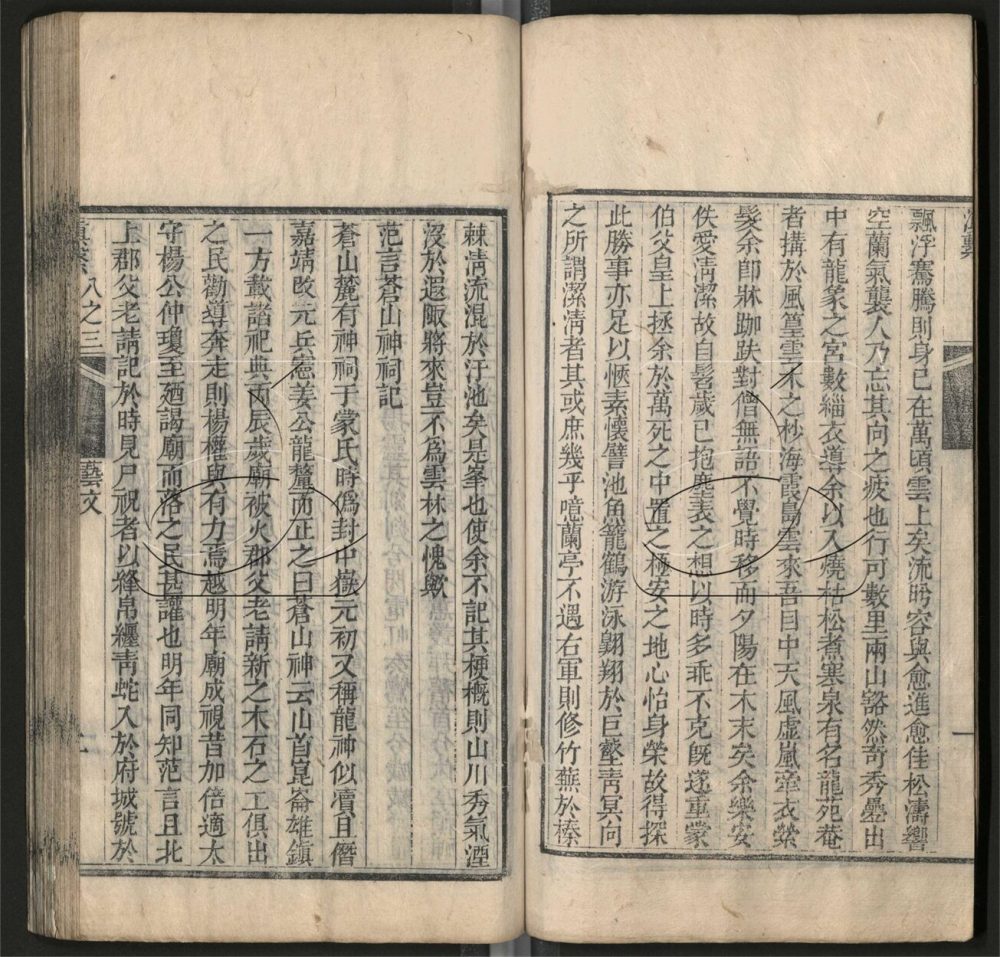 飄浮騫騰則身已在萬頃雲上矣流眄容與愈進愈佳松濤響
空蘭氣襲人乃忘其向之疲也行可數里兩山豁然奇秀疊出
中有龍象之宮數緇衣導余以入燒枯松煮寒泉有名龍苑菴
者搆於風篁雲木之杪海霞島雲來吾目中天風虛嵐牽衣縈
髮余卽牀跏趺對僧無語不覺時移而夕陽在木末矣余樂安
佚愛淸潔故自髫歲已抱塵表之想以時多乖不克旣遂重蒙
伯父皇上拯余於萬死之中置之極安之地心怡身榮故得探
此勝事亦足以愜素懷譬池魚籠鶴游泳翺翔於巨壑靑冥向
之所謂潔淸者其或庶幾乎噫蘭亭不遇右軍則修竹蕪於榛
棘淸流混於汙池矣是峯也使余不記其梗槪則山川秀氣湮
沒於遐陬將來豈不爲雲林之愧歟
范言蒼山神祠記
蒼山麓有神祠于蒙氏時僞封中嶽元初又稱龍神似瀆且僭
嘉靖改元兵憲姜公龍釐而正之曰蒼山神云山首崑崙雄鎭
一方載諸祀典丙辰歲廟被火郡父老請新之木石之工俱出
之民勸導奔走則楊權與有力焉越明年廟成視昔加倍適太
守楊公仲瓊至廼謁廟而落之民甚讙也明年同知范言且北
上郡父老請記於時見尸祝者以絳帛纏靑蛇入於府城號於
滇繫
八之三
藝文